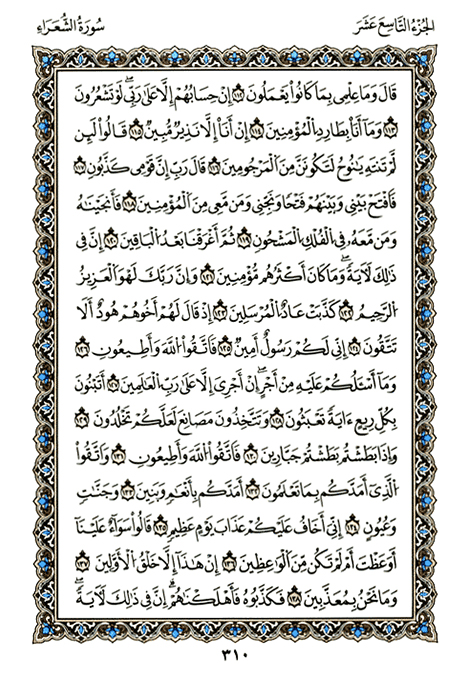 الجزء التاسع عشر
سورة الشعراء
قَالَ وَمَا عِلْمِى بِمَا كَانُوا۟ يَعْمَلُونَ ١١٢ إِنْ حِسَابُهُمْ إِلَّا عَلَىٰ رَبِّى ۖ لَوْ تَشْعُرُونَ
١١٣ وَمَآ أَنَا۠ بِطَارِدِ ٱلْمُؤْمِنِينَ ١١٤ إِنْ أَنَا۠ إِلَّا نَذِيرٌ مُّبِينٌ ١١٥ قَالُوا۟ لَئِن
لَّمْ تَنتَهِ يَـٰنُوحُ لَتَكُونَنَّ مِنَ ٱلْمَرْجُومِينَ ١١٦ قَالَ رَبِّ إِنَّ قَوْمِى كَذَّبُونِ ١١٧
فَٱفْتَحْ بَيْنِى وَبَيْنَهُمْ فَتْحًا وَنَجِّنِى وَمَن مَّعِىَ مِنَ ٱلْمُؤْمِنِينَ ١١٨ فَأَنجَيْنَـٰهُ
وَمَن مَّعَهُۥ فِى ٱلْفُلْكِ ٱلْمَشْحُونِ ١١٩ ثُمَّ أَغْرَقْنَا بَعْدُ ٱلْبَاقِينَ ١٢٠ إِنَّ فِى
ذَٰلِكَ لَـَٔايَةً ۖ وَمَا كَانَ أَكْثَرُهُم مُّؤْمِنِينَ ١٢١ وَإِنَّ رَبَّكَ لَهُوَ ٱلْعَزِيزُ
ٱلرَّحِيمُ ١٢٢ كَذَّبَتْ عَادٌ ٱلْمُرْسَلِينَ ١٢٣ إِذْ قَالَ لَهُمْ أَخُوهُمْ هُودٌ أَلَا
تَتَّقُونَ ١٢٤ إِنِّى لَكُمْ رَسُولٌ أَمِينٌ ١٢٥ فَٱتَّقُوا۟ ٱللَّهَ وَأَطِيعُونِ ١٢٦
وَمَآ أَسْـَٔلُكُمْ عَلَيْهِ مِنْ أَجْرٍ ۖ إِنْ أَجْرِىَ إِلَّا عَلَىٰ رَبِّ ٱلْعَـٰلَمِينَ ١٢٧ أَتَبْنُونَ
بِكُلِّ رِيعٍ ءَايَةً تَعْبَثُونَ ١٢٨ وَتَتَّخِذُونَ مَصَانِعَ لَعَلَّكُمْ تَخْلُدُونَ ١٢٩
وَإِذَا بَطَشْتُم بَطَشْتُمْ جَبَّارِينَ ١٣٠ فَٱتَّقُوا۟ ٱللَّهَ وَأَطِيعُونِ ١٣١ وَٱتَّقُوا۟
ٱلَّذِىٓ أَمَدَّكُم بِمَا تَعْلَمُونَ ١٣٢ أَمَدَّكُم بِأَنْعَـٰمٍ وَبَنِينَ ١٣٣ وَجَنَّـٰتٍ
وَعُيُونٍ ١٣٤ إِنِّىٓ أَخَافُ عَلَيْكُمْ عَذَابَ يَوْمٍ عَظِيمٍ ١٣٥ قَالُوا۟ سَوَآءٌ عَلَيْنَآ
أَوَعَظْتَ أَمْ لَمْ تَكُن مِّنَ ٱلْوَٰعِظِينَ ١٣٦ إِنْ هَـٰذَآ إِلَّا خُلُقُ ٱلْأَوَّلِينَ ١٣٧
وَمَا نَحْنُ بِمُعَذَّبِينَ ١٣٨ فَكَذَّبُوهُ فَأَهْلَكْنَـٰهُمْ ۗ إِنَّ فِى ذَٰلِكَ لَـَٔايَةً ۖ
٣١٠